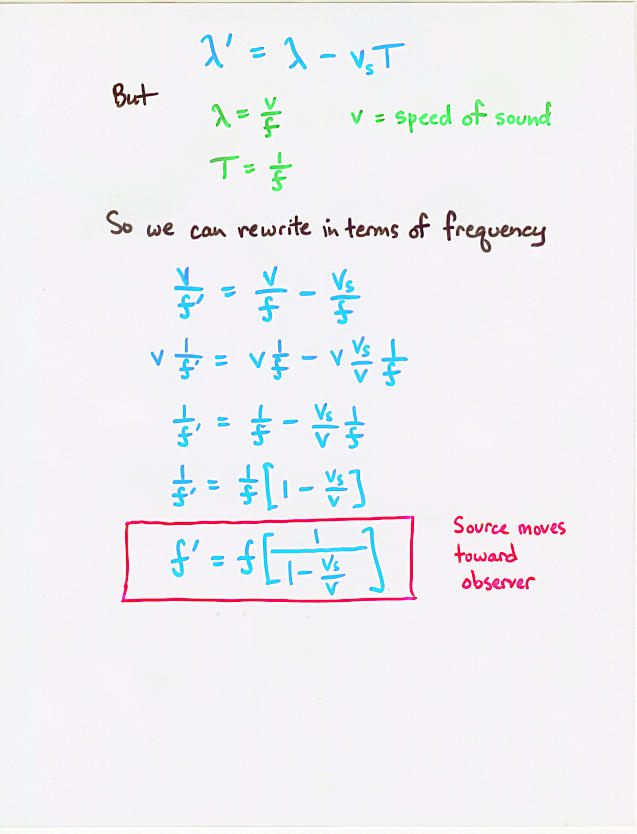 λ' = λ - vₛT
But
λ = v/f    v = speed of sound
T = 1/f
So we can rewrite in terms of frequency
v/f' = v/f - vₛ/f
v 1/f' = v 1/f - v vₛ/v 1/f
1/f' = 1/f - vₛ/v 1/f
1/f' = 1/f [1 - vₛ/v]
f' = f [1/(1 - vₛ/v)]
Source moves
toward
observer